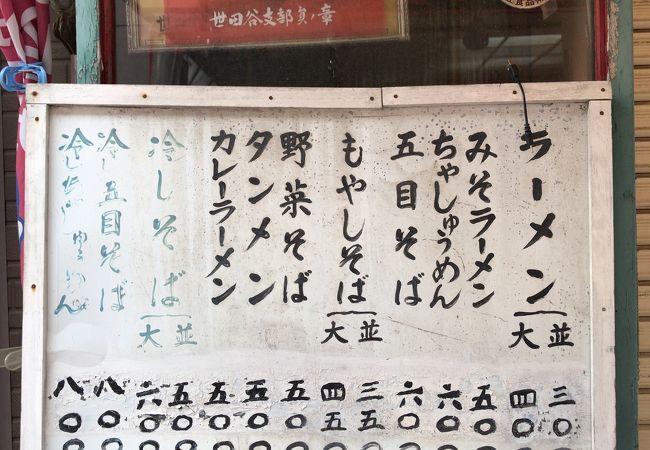 世田谷支部員ノ章
ラーメン 並 三〇〇
大 四〇〇
みそラーメン 五〇〇
ちゃしゅうめん 六〇〇
五目そば 六〇〇
もやしそば 並 三五〇
大 四五〇
野菜そば 五〇〇
タンメン 五〇〇
カレーラーメン 五〇〇
冷しそば 並 五〇〇
大 六〇〇
冷し五目そば 八〇〇
冷しちゃしゅうめん 八〇〇